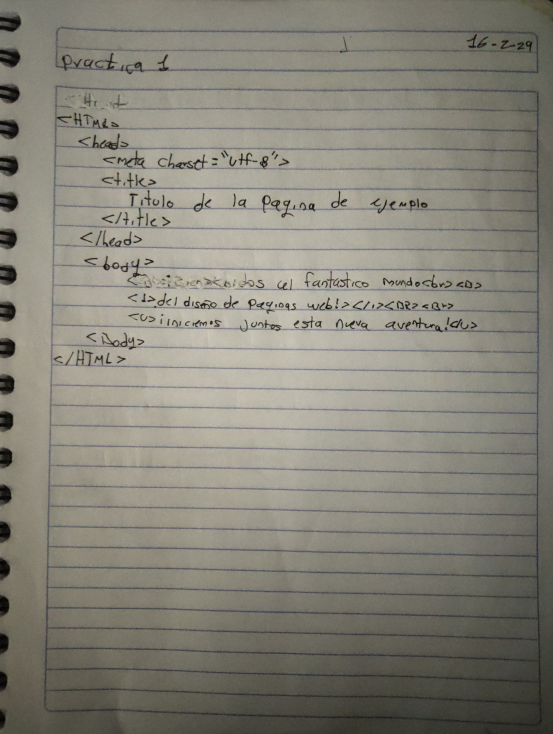 16-2-24
practica 1
<HTML>
<head>
<meta charset="utf-8">
<title>
Titulo de la pagina de ejemplo
</title>
</head>
<body>
al fantastico mundo<br><B>
<I>del diseño de paginas web!></i><BR><Br>
<U>iiniciemos juntos esta nueva aventura!</U>
<Body>
</HTML>